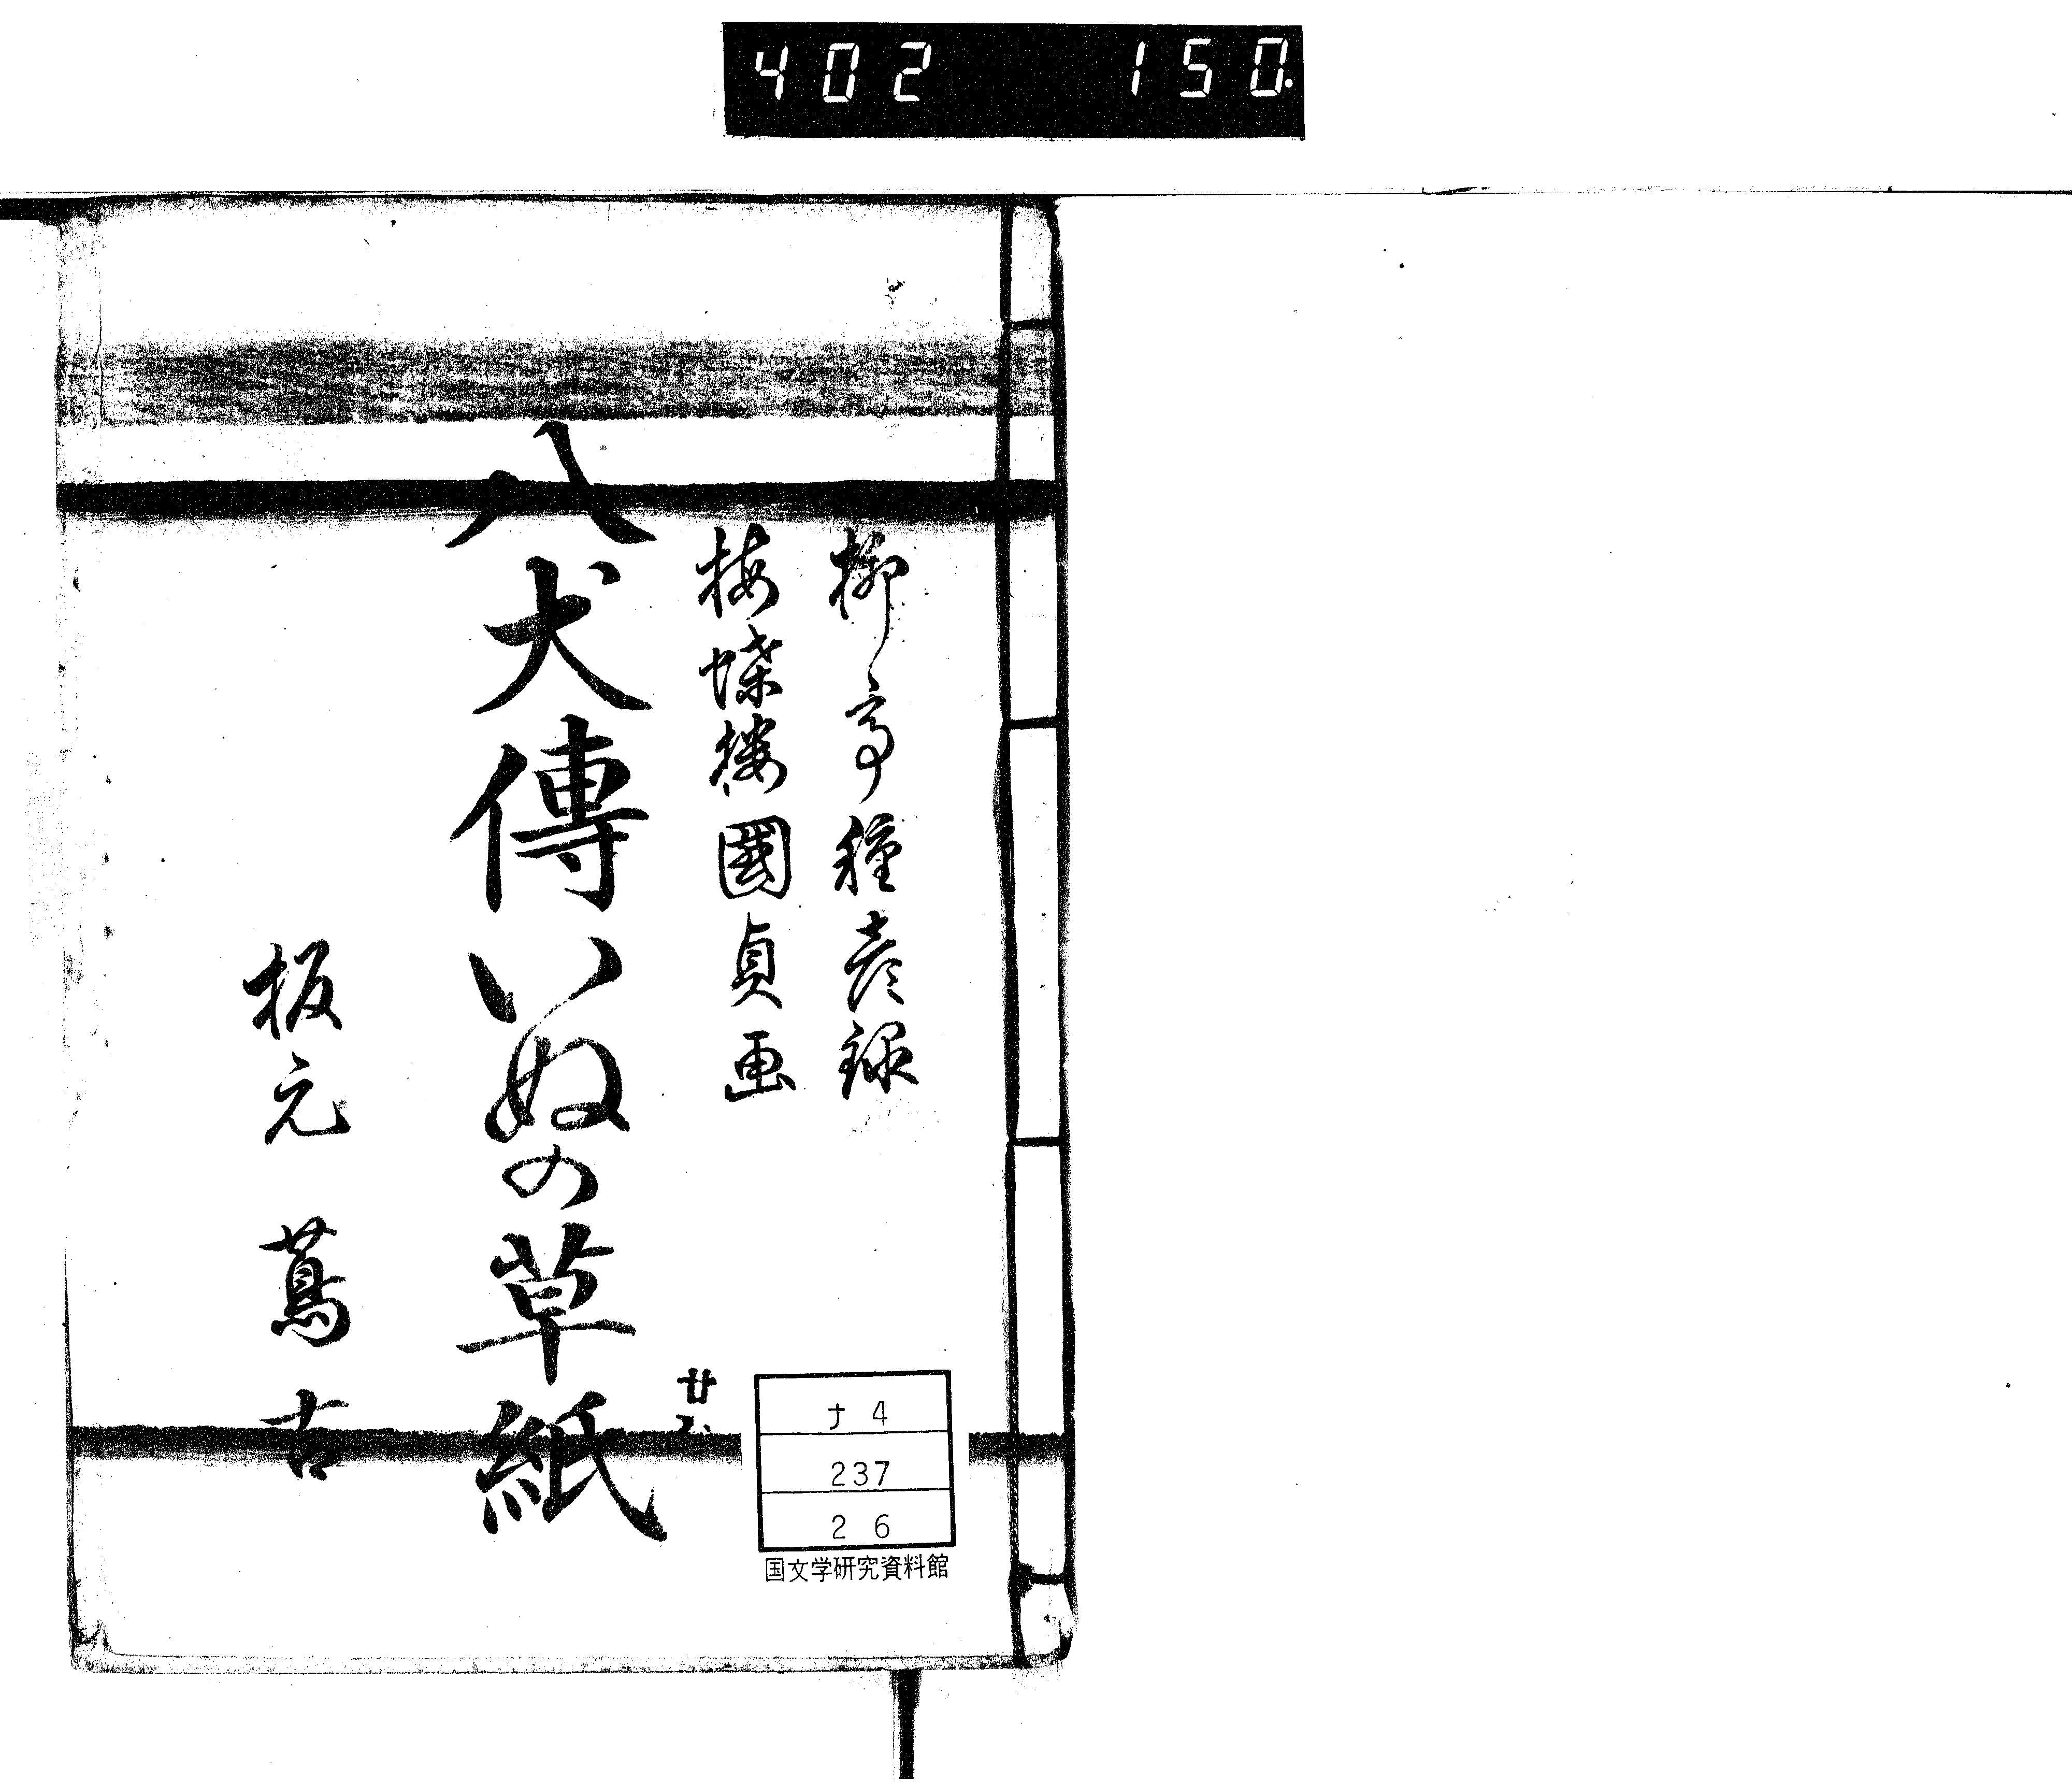 402 150.
柳亭種彦録
梅蝶楼國貞画
八犬傳いぬの草紙
廿
板元 蔦吉
ナ4
237
26
国文学研究資料館